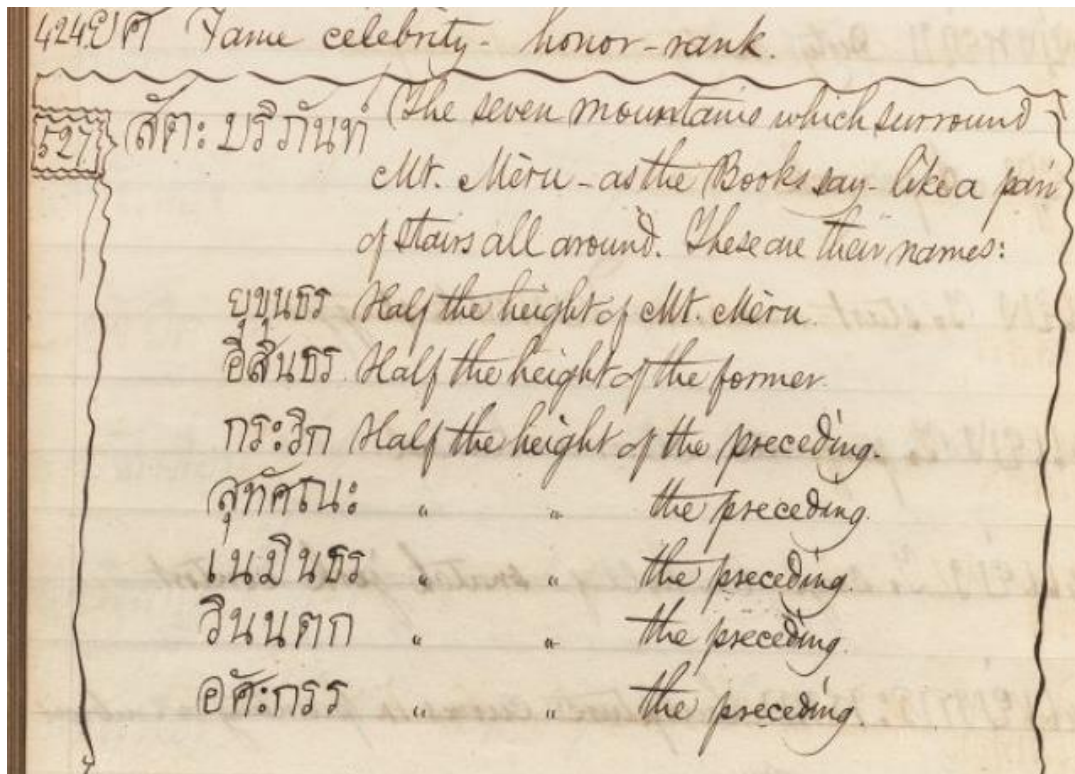 424 ยศ Fame celebrity - honor-rank.
527 สัตะบริภันท์ The seven mountains which surround
Mt. Mèru - as the Books say - like a pair
of stairs all around. These are their names:
ยุขุนธร Half the height of Mt. Mèru.
อีสินธร Half the height of the former.
กระวิก Half the height of the preceding.
สุทัศณะ " " the preceding.
เนมินธร " " the preceding.
วินนตก " " the preceding.
อัศะกรร " " the preceding.